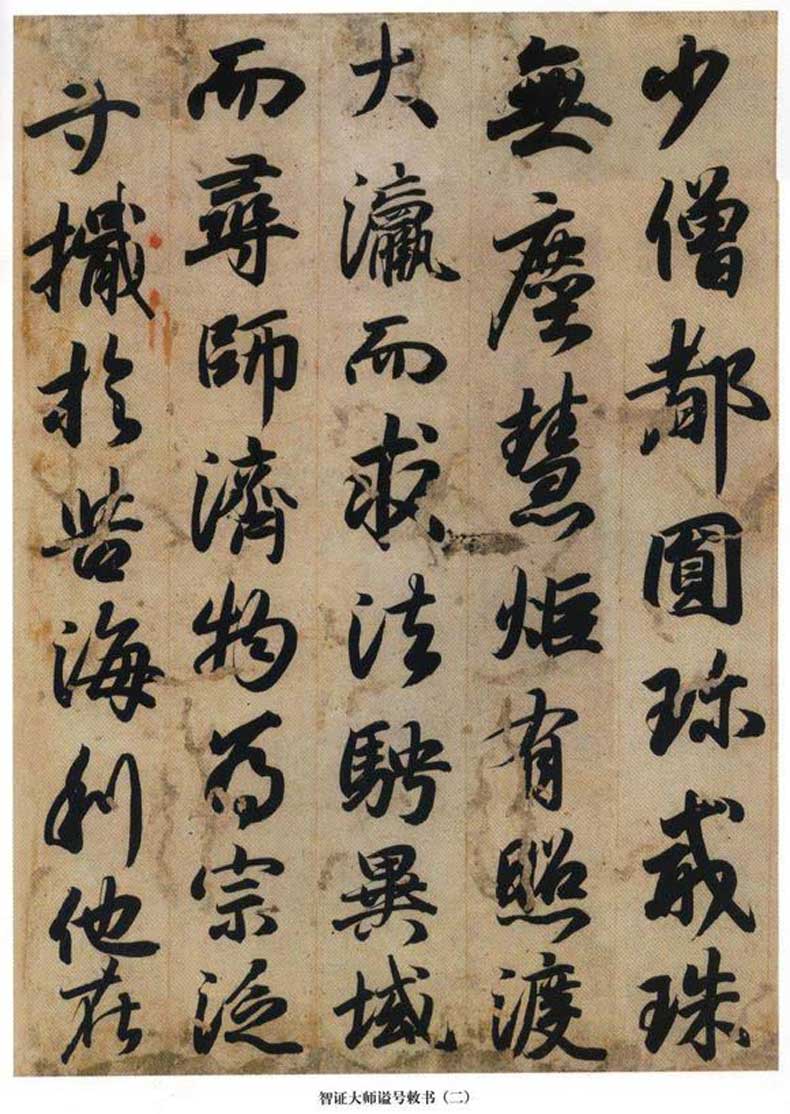 少僧都圓珎戒珠
無塵慧炬有照渡
大瀛而求法騁異域
而尋師濟物為宗泛
寸檝於苦海利他在
智证大师谥号敕书（二）